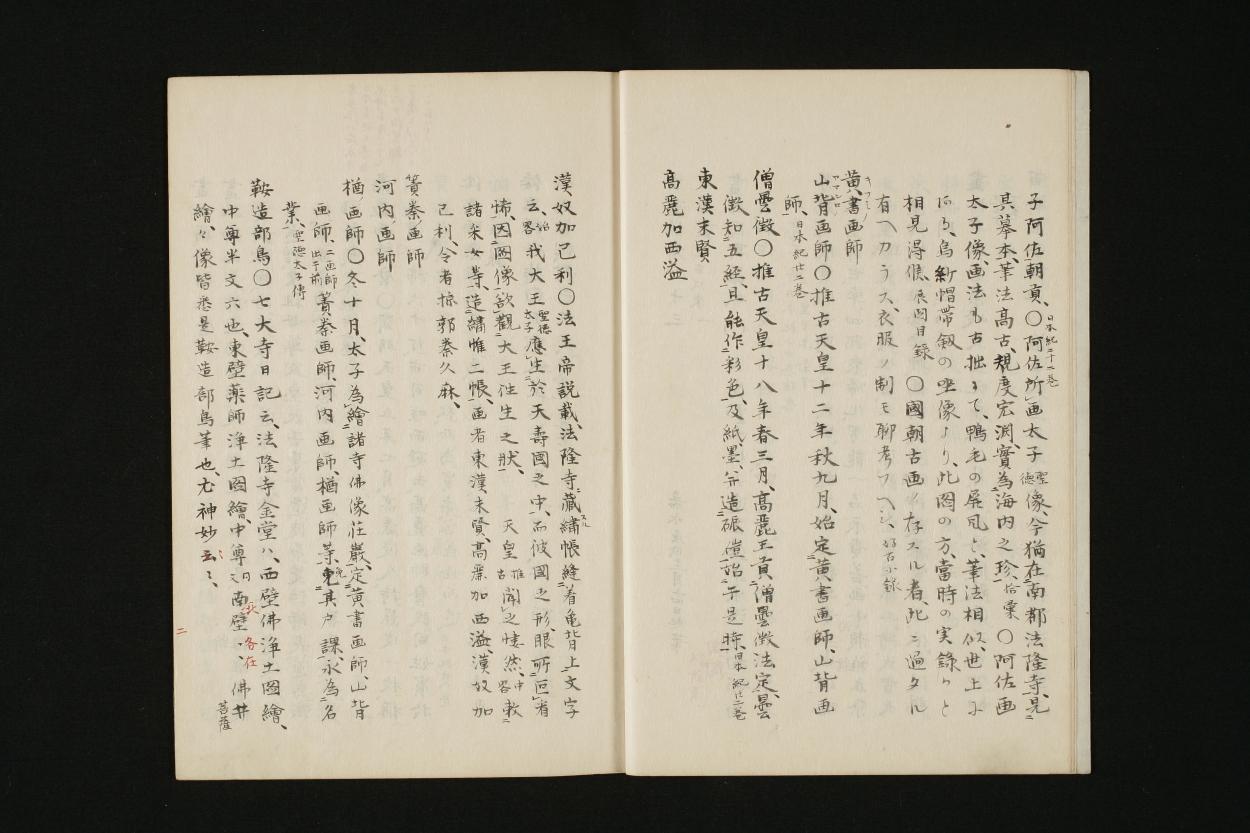 子阿佐朝貢、〇阿佐所画太子聖徳像今猶在南都法隆寺、見
日本紀二十二巻
其摹本、筆法高古規度宏淵、實為海内之珍、拾彙 〇阿佐画
太子像、画法も古拙にて、鴨毛の屏風と、筆法相似、世上に
ある、烏紗帽帯劔の坐像より、此図の方、當時の実録かと
相見得候、展閲目録 〇國朝古画ノ存スル者、此ニ過タル
有ヘカラス、衣服ノ制モ聊考フヘシ、好古小録
黄書画師
キフミノ
山背画師〇推古天皇十二年秋九月、始定黄書画師、山背画
ヤマシロ
師、日本紀廿二巻
僧曇徴〇推古天皇十八年春三月、髙麗王貢僧曇徴法定、曇
徴知五経、且能作彩色、及紙墨、并造碾磑、始于是時、日本紀廿二巻
東漢末賢
髙麗加西溢
漢奴加己利〇法王帝説載、法隆寺蔵繍帳縫着亀背上文字
スル
云、始畧我大王聖徳太子應生於天壽國之中、而彼國之形、眼所叵看
悕因圖像、欲觀大王往生之状、天皇推古聞之悽然、中畧敕
諸采女等、造繍帷二帳、画者東漢末賢、髙麗加西溢、漢奴加
己利、令者椋部秦久麻、
簀秦画師
河内画師
楢画師〇冬十月、太子為繪諸寺佛像荘嚴、定黄書画師、山背
画師、二画師出于前簀秦画師、河内画師、楢画師等、免其戸課、永為名
業、聖徳太子傳
鞍造部鳥〇七大寺日記云、法隆寺金堂ハ、西壁佛浄土圖繪、
中尊半丈六也、東壁薬師浄土圖繪中尊丈南壁、、佛井菩薩
各任
繪、〻像皆悉是鞍造部鳥筆也、尤神妙云〻、
二